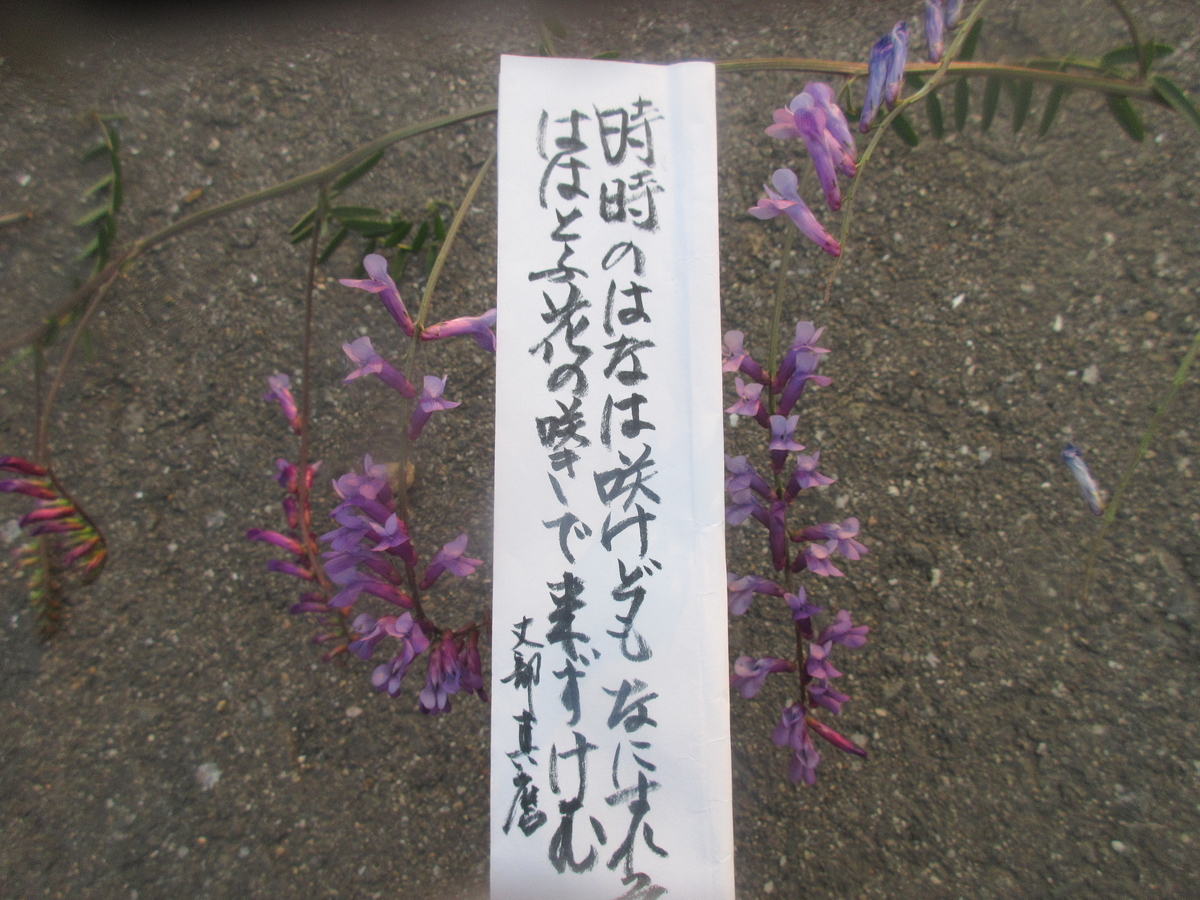 時時のはなは咲けどもなにすれそ
ははとふ花の咲きで来ずけむ
丈部真麿